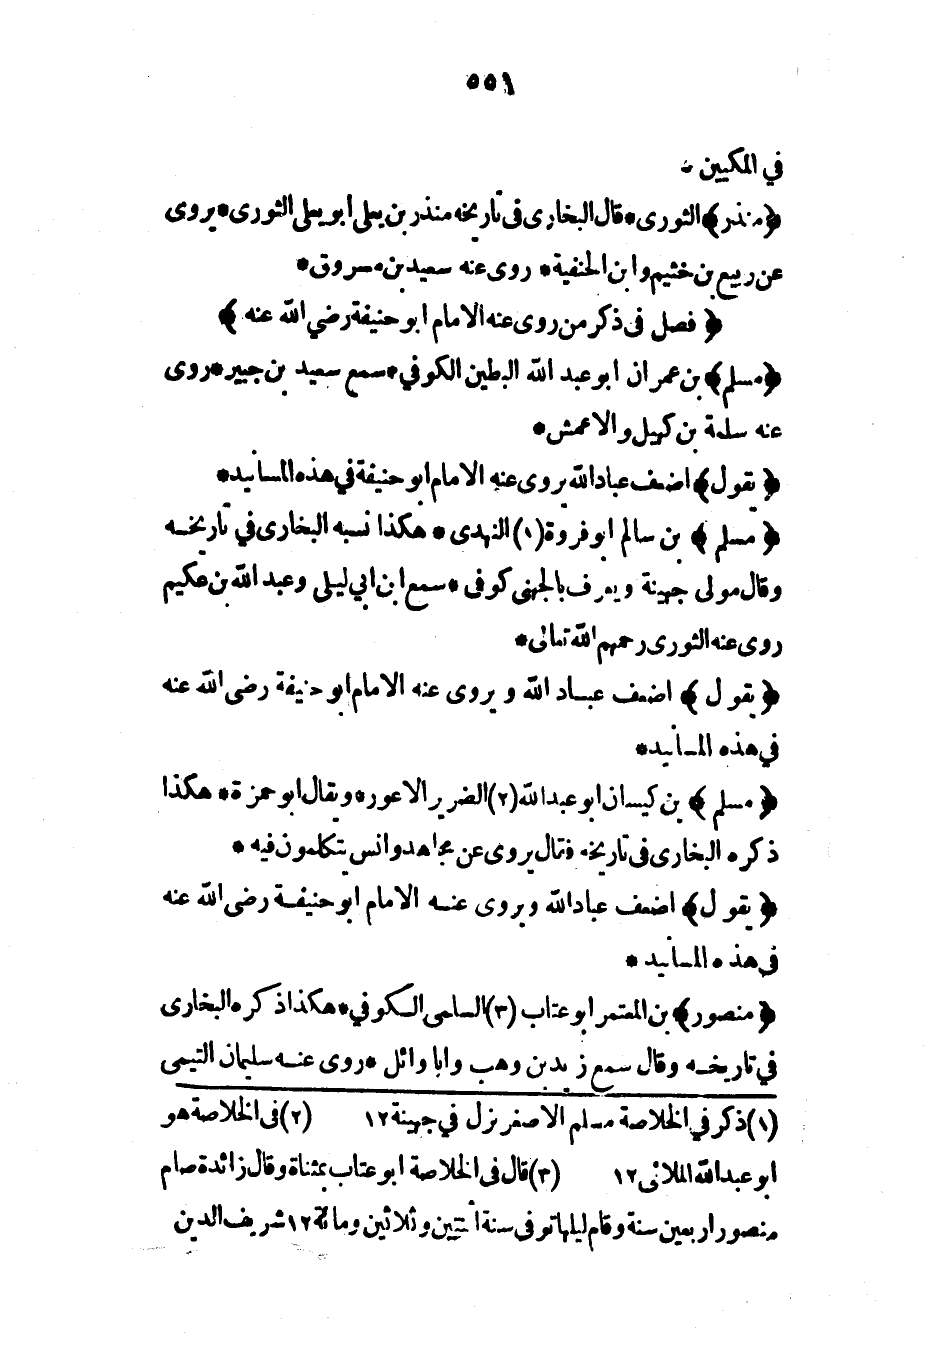 ٥٥١
في المكيين *
﴿منذر﴾ الثورى * قال البخارى فى تاريخه منذر بن يعلى ابو يعلى الثورى * يروى
عن ربيع بن خثيم وابن الحنفية * روى عنه سعيد بن مسروق *
﴿ فصل فى ذكر من روى عنه الامام ابو حنيفة رضي الله عنه ﴾
﴿مسلم﴾ بن عمران ابو عبد الله البطين الكوفي * سمع سعيد بن جبير * روى
عنه سلمة بن كهيل والاعمش *
﴿يقول﴾ اضعف عباد الله يروى عنه الامام ابو حنيفة في هذه المسانيد *
﴿ مسلم ﴾ بن سالم ابو فروة (١) النهدى * هكذا نسبه البخارى في تاريخه
وقال مولى جهينة ويعرف بالجهنى كوفى * سمع ابن ابي ليلى وعبد الله بن عكيم
روى عنه الثورى رحمهم الله تعالى *
﴿ يقول ﴾ اضعف عباد الله ويروى عنه الامام ابو حنيفة رضى الله عنه
في هذه المسانيد *
﴿ مسلم ﴾ بن كيسان ابو عبد الله (٢) الضرير الاعور * ويقال ابو حمزة * هكذا
ذكره البخارى فى تاريخه فقال يروى عن مجاهد وانس يتكلمون فيه *
﴿ يقول ﴾ اضعف عباد الله ويروى عنه الامام ابو حنيفة رضى الله عنه
فى هذه المسانيد *
﴿ منصور﴾ بن المعتمر ابو عتاب (٣) السلمى الكوفي * هكذا ذكره البخارى
في تاريخه وقال سمع زيد بن وهب وابا وائل * روى عنه سليمان التيمى
(١) ذكر في الخلاصة مسلم الاصغر نزل في جهينة ١٢ (٢) فى الخلاصة هو
ابو عبد الله الملائى ١٢ (٣) قال فى الخلاصة ابو عتاب بمثناة وقال زائدة صام
منصور اربعين سنة وقام ليلها توفى سنة اثنتين وثلاثين ومائة ١٢ شريف الدين